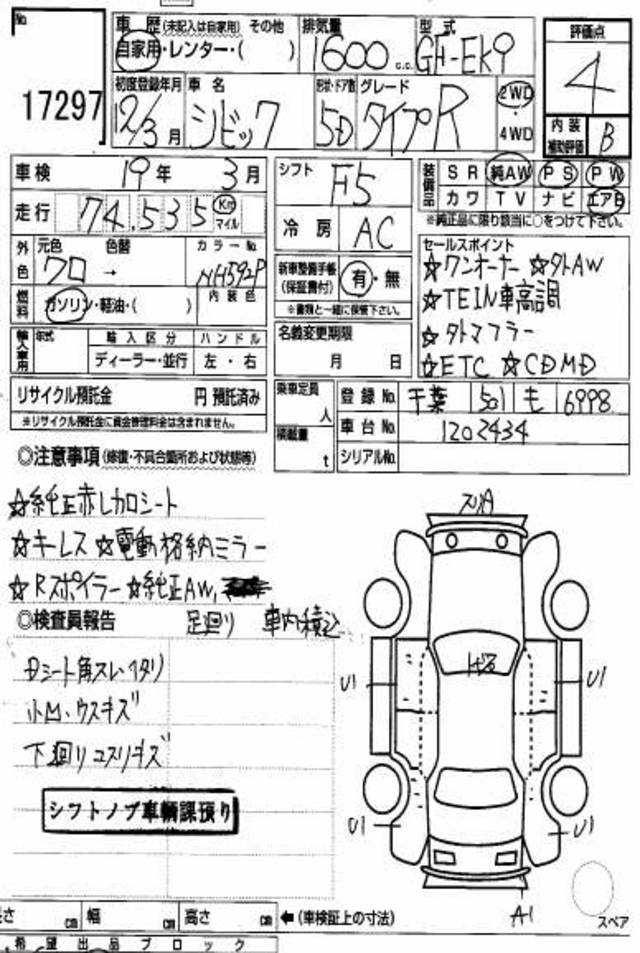 No.
17297
車歴 (未記入は自家用) その他
自家用・レンター・( )
排気量
1600 c.c.
型式
GH-EK9
評価点
4
内装
補助評価
B
初度登録年月
12/3月
車名
シビック
形状・ドア数
5D
グレード
タイプR
2WD
・
4WD
車検 19年 3月
走行 74,535 Km
マイル
シフト
F5
冷房
AC
装備品
SR 純AW PS PW
カワ TV ナビ エアB
※純正品に限り該当に○をつけて下さい。
外色
元色 色替 カラーNo.
クロ → NH592P
燃料
ガソリン・軽油・( )
内装色
新車整備手帳
(保証書付)
有・無
※書類と一緒に保管下さい。
セールスポイント
☆ワンオーナー ☆タトAW
☆TEIN車高調
☆タトマフラー
☆ETC ☆CDMD
輸入車用
年式
輸入区分 ハンドル
ディーラー・並行 左・右
名義変更期限
月 日
リサイクル預託金 円 預託済み
※リサイクル預託金に資金管理料金は含まれません。
乗車定員
人
積載量
t
登録No. 千葉 501 も 6998
車台No. 1202434
シリアルNo.
◎注意事項 (修復・不具合箇所および状態等)
☆純正赤レカロシート
☆キーレス ☆電動格納ミラー
☆Rスポイラー ☆純正AW、
足廻り 車内積込
◎検査員報告
Dシート角スレ・イタリ
小凹・ウスキズ
下廻りコスリキズ
シフトノブ車輌課預り
スリA
U1
U1
U1
U1
A1
スペア
長さ cm 幅 cm 高さ cm ←(車検証上の寸法)
希望出品ブロック